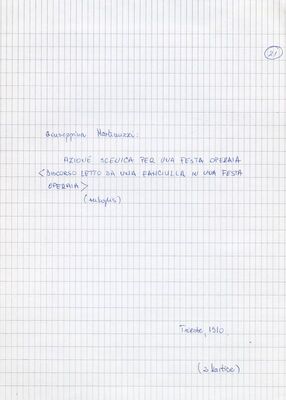 21
Giuseppina Martinuzzi:
AZIONE SCENICA PER UNA FESTA OPERAIA
<DISCORSO LETTO DA UNA FANCIULLA IN UNA FESTA
OPERAIA>
Trieste, 1910.